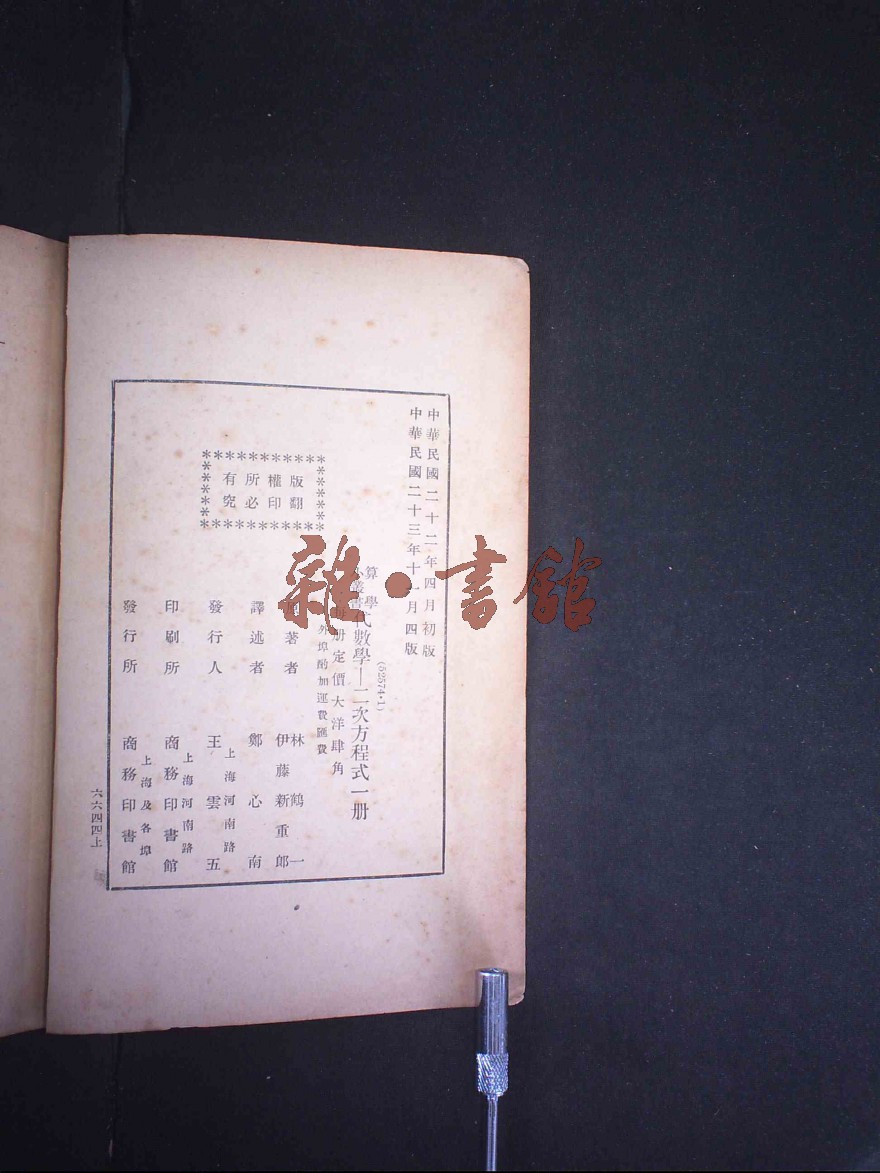 中華民國二十二年四月初版
中華民國二十三年十一月四版
(52574·1)
算學
小叢書
代數學—二次方程式一册
每册定價大洋肆角
外埠酌加運費匯費
版權所有
翻印必究
原著者 林鶴一
伊藤新重郎
譯述者 鄭心南
上海河南路
發行人 王雲五
上海河南路
印刷所 商務印書館
上海及各埠
發行所 商務印書館
六六四四上
雜·書館